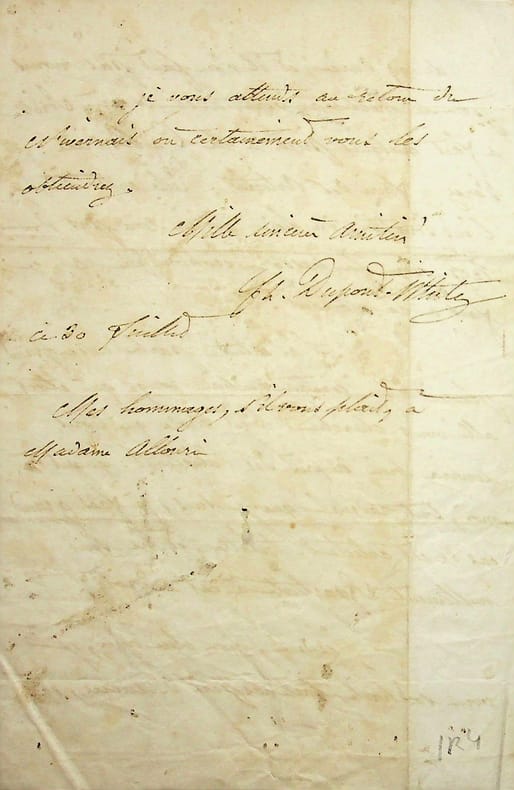 je vous attends au retour du
Nivernais où certainement vous les
obtiendrez.
Mille sincères amitiés
Ch. Dupont-White
ce 30 Juillet
Mes hommages, s'il vous plait, à
Madame